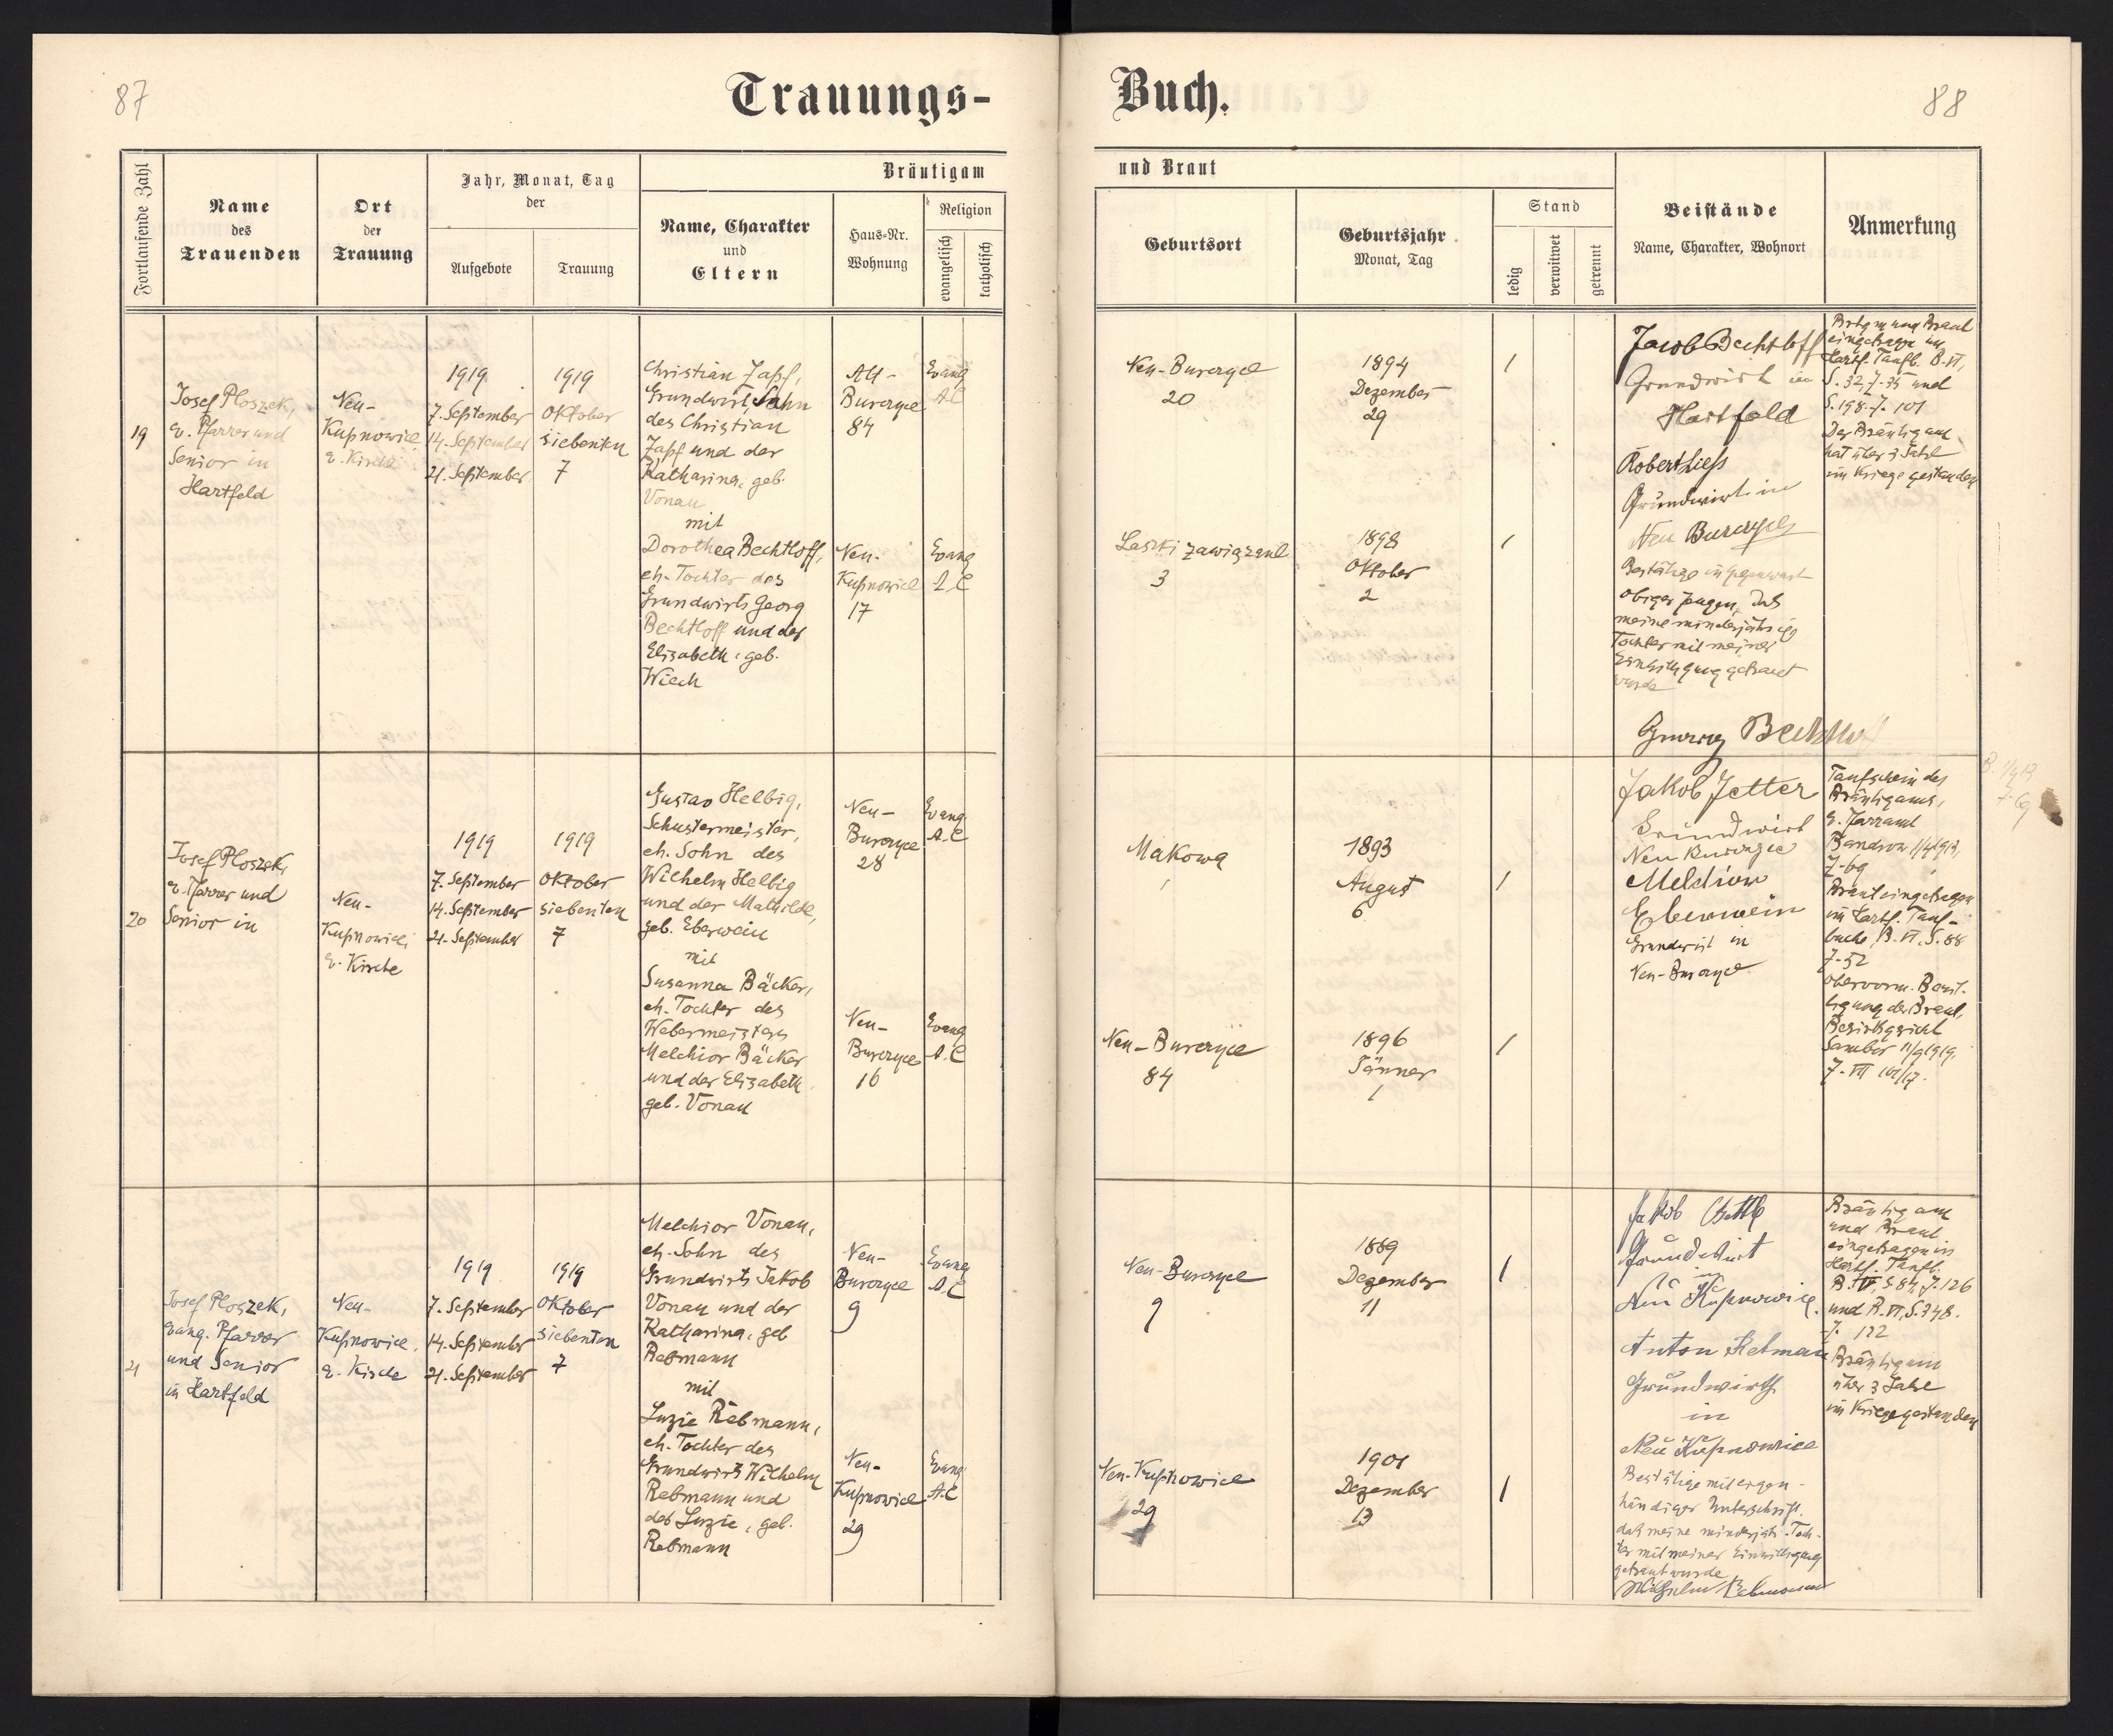 87
Trauungs-
Fortlaufende Zahl
Name
des
Trauenden
Ort
der
Trauung
Jahr, Monat, Tag
der
Aufgebote
Trauung
Bräutigam
Name, Charakter
und
Eltern
Haus-Nr.
Wohnung
Religion
evangelisch
katholisch
19
Josef Ploszek,
ev. Pfarrer und
Senior in
Hartfeld
Neu-
Kupnowice
ev. Kirche
1919
7. September
14. September
21. September
1919
Oktober
siebenten
7
Christian Zapf,
Grundwirt, Sohn
des Christian
Zapf und der
Katharina, geb.
Vonau
mit
Dorothea Bechtloff,
eh. Tochter des
Grundwirts Georg
Bechtloff und der
Elisabeth, geb.
Wiech
Alt-
Burczyce
84
Evang
A.C
Neu-
Kupnowice
17
Evang
A.C
20
Josef Ploszek,
ev. Pfarrer und
Senior in
Neu-
Kupnowice,
ev. Kirche
1919
7. September
14. September
21. September
1919
Oktober
siebenten
7
Gustav Helbig,
Schustermeister,
eh. Sohn des
Wilhelm Helbig
und der Mathilde,
geb. Eberwein
mit
Susanna Bäcker,
eh. Tochter des
Webermeisters
Melchior Bäcker
und der Elisabeth
geb. Vonau
Neu-
Burczyce
28
Evang.
A.C
Neu-
Burczyce
16
Evang
A.C
21
Josef Ploszek,
evang. Pfarrer
und Senior
in Hartfeld
Neu-
Kupnowice,
ev. Kirche
1919
7. September
14. September
21. September
1919
Oktober
siebenten
7
Melchior Vonau,
eh. Sohn des
Grundwirts Jakob
Vonau und der
Katharina, geb
Rebmann
mit
Luzie Rebmann,
eh. Tochter des
Grundwirts Wilhelm
Rebmann und
der Luzie, geb.
Rebmann
Neu-
Burczyce
9
Evang
A.C
Neu-
Kupnowice
29
Evang
A.C
Buch.
88
und Braut
Geburtsort
Geburtsjahr
Monat, Tag
Stand
ledig
verwitwet
getrennt
Beistände
Name, Charakter, Wohnort
Anmerkung
Neu-Burczyce
20
1894
Dezember
29
1
Laszki zawiązane
3
1898
Oktober
2
1
Jacob Bechtloff
Grundwirt in
Hartfeld
Robert Liess
Grundwirt in
Neu Burczyce
Bestätige in Gegenwart
obiger Zeugen, daß
meine minderjährige
Tochter mit meiner
Einwilligung getraut
wurde
Bechtloff
Brtgm und Braut
eingetragen im
Hartf. Taufb. B. VI,
S. 32, Z. 35 und
S. 198. Z. 101
Der Bräutigam
hat über 3 Jahre
im Kriege gestanden
Makowa
1893
August
6
1
Neu-Burczyce
84
1896
Jänner
1
1
Jakob Jetter
Grundwirt
Neu Burczyce
Melchior
Eberwein
Grundwirt in
Neu-Burczyce
Taufschein des
Bräutigams,
ev. Pfarramt
Bandrow 1/4 1913,
Z-69
Braut eingetragen
im Hartf. Tauf-
buche, B. VI, S. 88
Z-52
Obervorm. Bewil-
ligung der Braut,
Bezirksgericht
Sambor 11/9 1919.
Neu-Burczyce
9
1889
Dezember
11
1
Neu-Kupnowice
29
1901
Dezember
13
1
Jakob
Grundwirt
in
Neu Kupnowice.
Anton Rebmann
Grundwirth
in
Neu Kupnowice
Bestätige mit eigen-
händiger Unterschrift,
daß meine minderjäh. Toch-
ter mit meiner Einwilligung
getraut wurde
Wilhelm Rebmann
Bräutigam
und Braut
eingetragen in
Hartf. Taufb.
und B. VI, S. 348.
Z. 122
Bräutigam
über 3 Jahre
im Kriege gestanden